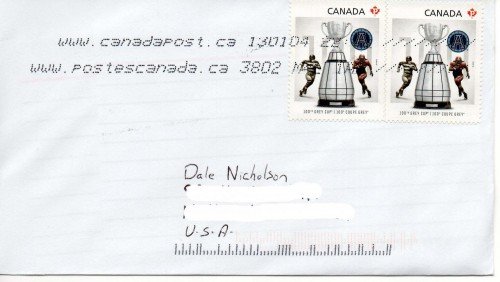 CANADA P CANADA P
www.canadapost.ca 130104 22
www.postescanada.ca 3802
100th GREY CUP | 100e COUPE GREY 100th GREY CUP | 100e COUPE GREY
Dale Nicholson
U.S.A.